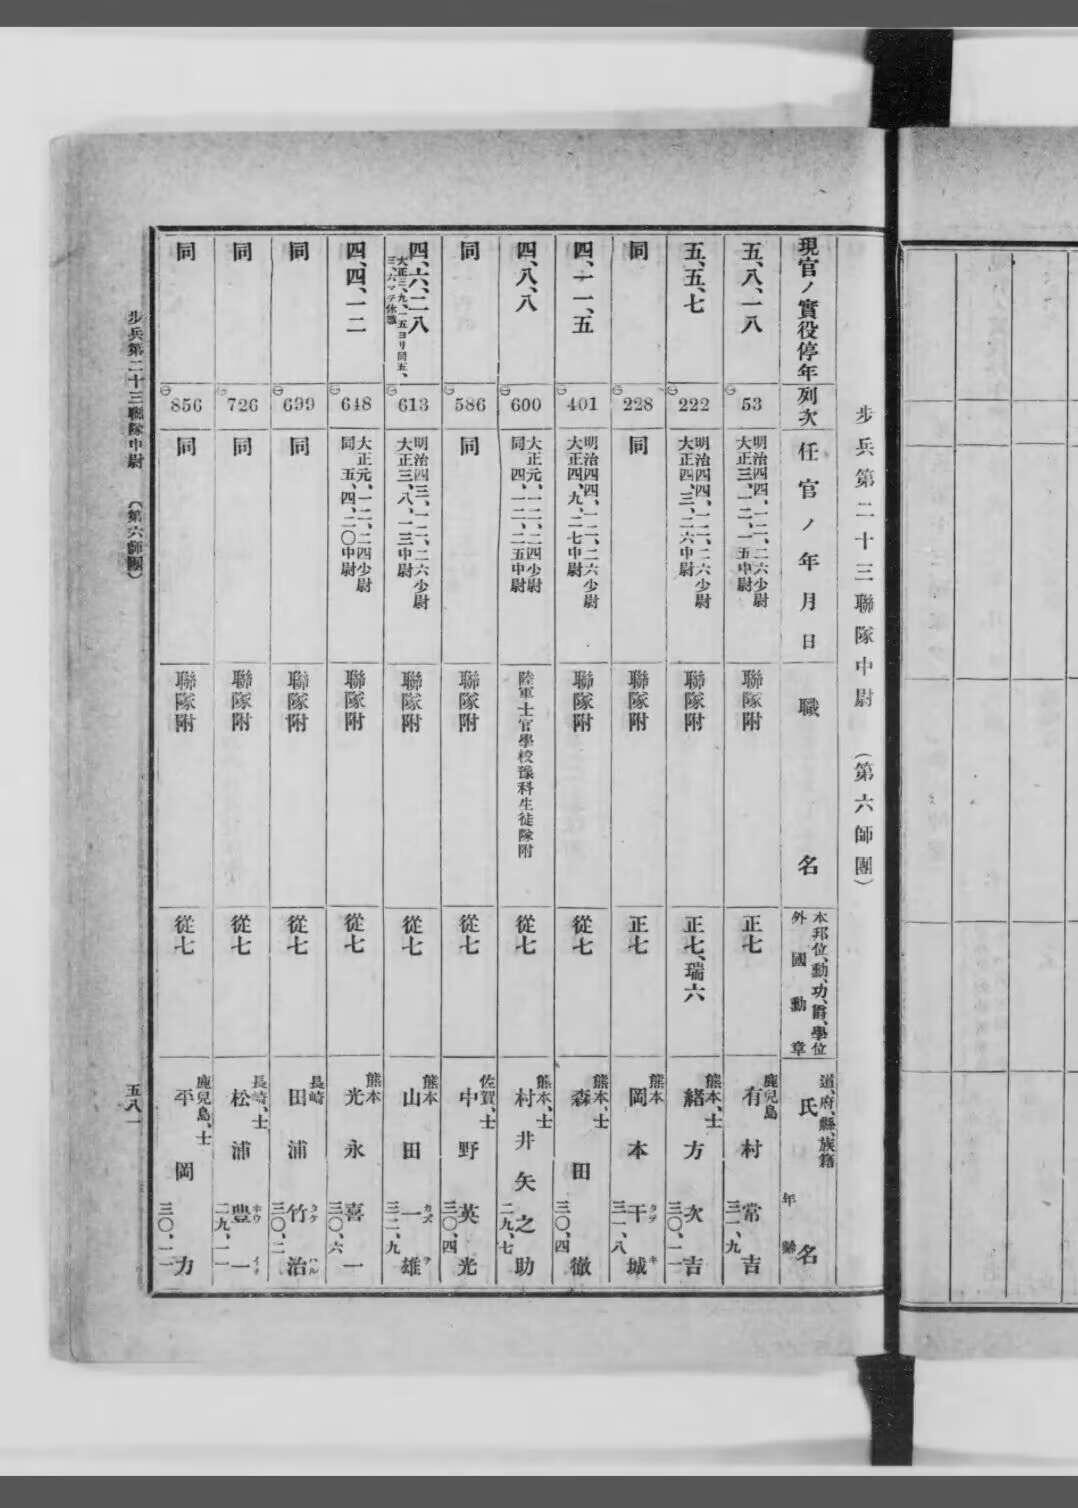 歩兵第二十三聯隊中尉 （第六師團）
現官ノ實役停年 列次 任官ノ年月日 職名 本邦位、勳、功、爵、學位 外國勳章 道府、縣、族籍 氏名 年齡
五、八、一八 ㊀53 明治四四、一二、二六少尉 大正三、一二、一五中尉 聯隊附 正七 鹿兒島 有村常吉 三一、九
五、五、七 ㊀222 明治四四、一二、二六少尉 大正四、三、二六中尉 聯隊附 正七、瑞六 熊本、士 緒方次吉 三〇、一一
同 ㊀228 同 聯隊附 正七 熊本 岡本干城 タテキ 三一、八
四、一一、五 ㊀401 明治四四、一二、二六少尉 大正四、九、二七中尉 聯隊附 從七 熊本、士 森田徹 三〇、四
四、八、八 ㊀600 大正元、一二、二四少尉 同 四、一二、二五中尉 陸軍士官學校豫科生徒隊附 從七 熊本、士 村井矢之助 二九、七
同 ㊀586 同 聯隊附 從七 佐賀、士 中野英光 三〇、四
四、六、二八 大正三、九、一五ヨリ同五、三、六マテ休職 ㊀613 明治四三、一二、二六少尉 大正三、八、一三中尉 聯隊附 從七 熊本 山田一雄 カズヲ 三二、九
四、四、一二 ㊀648 大正元、一二、二四少尉 同 五、四、二〇中尉 聯隊附 從七 熊本 光永喜一 三〇、六
同 ㊀699 同 聯隊附 從七 長崎 田浦竹治 タケハル 三〇、二
同 ㊀726 同 聯隊附 從七 長崎、士 松浦豐一 ホウイチ 二九、一一
同 ㊀856 同 聯隊附 從七 鹿兒島、士 平岡力 三〇、一一
歩兵第二十三聯隊中尉 （第六師團）
五八一